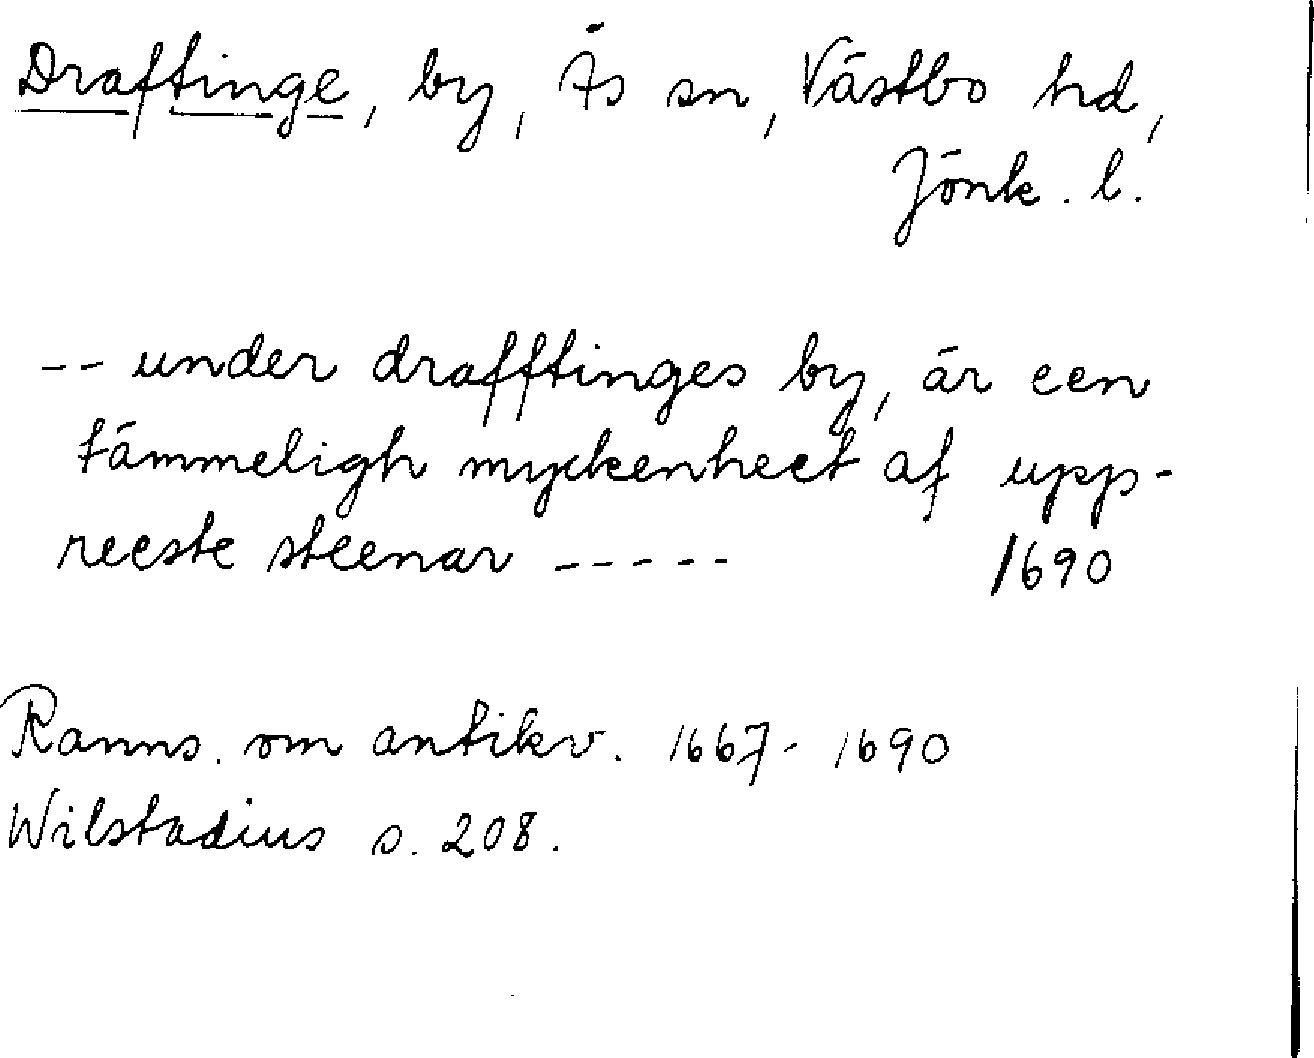 Draftinge, by, Ås sn, Västbo hd,
Jönk. l.
-- under drafftinges by, är een
tämmeligh myckenheet af upp-
reeste steenar ----- 1690
Ranns. om antikv. 1667-1690
Wilstadius s. 208.